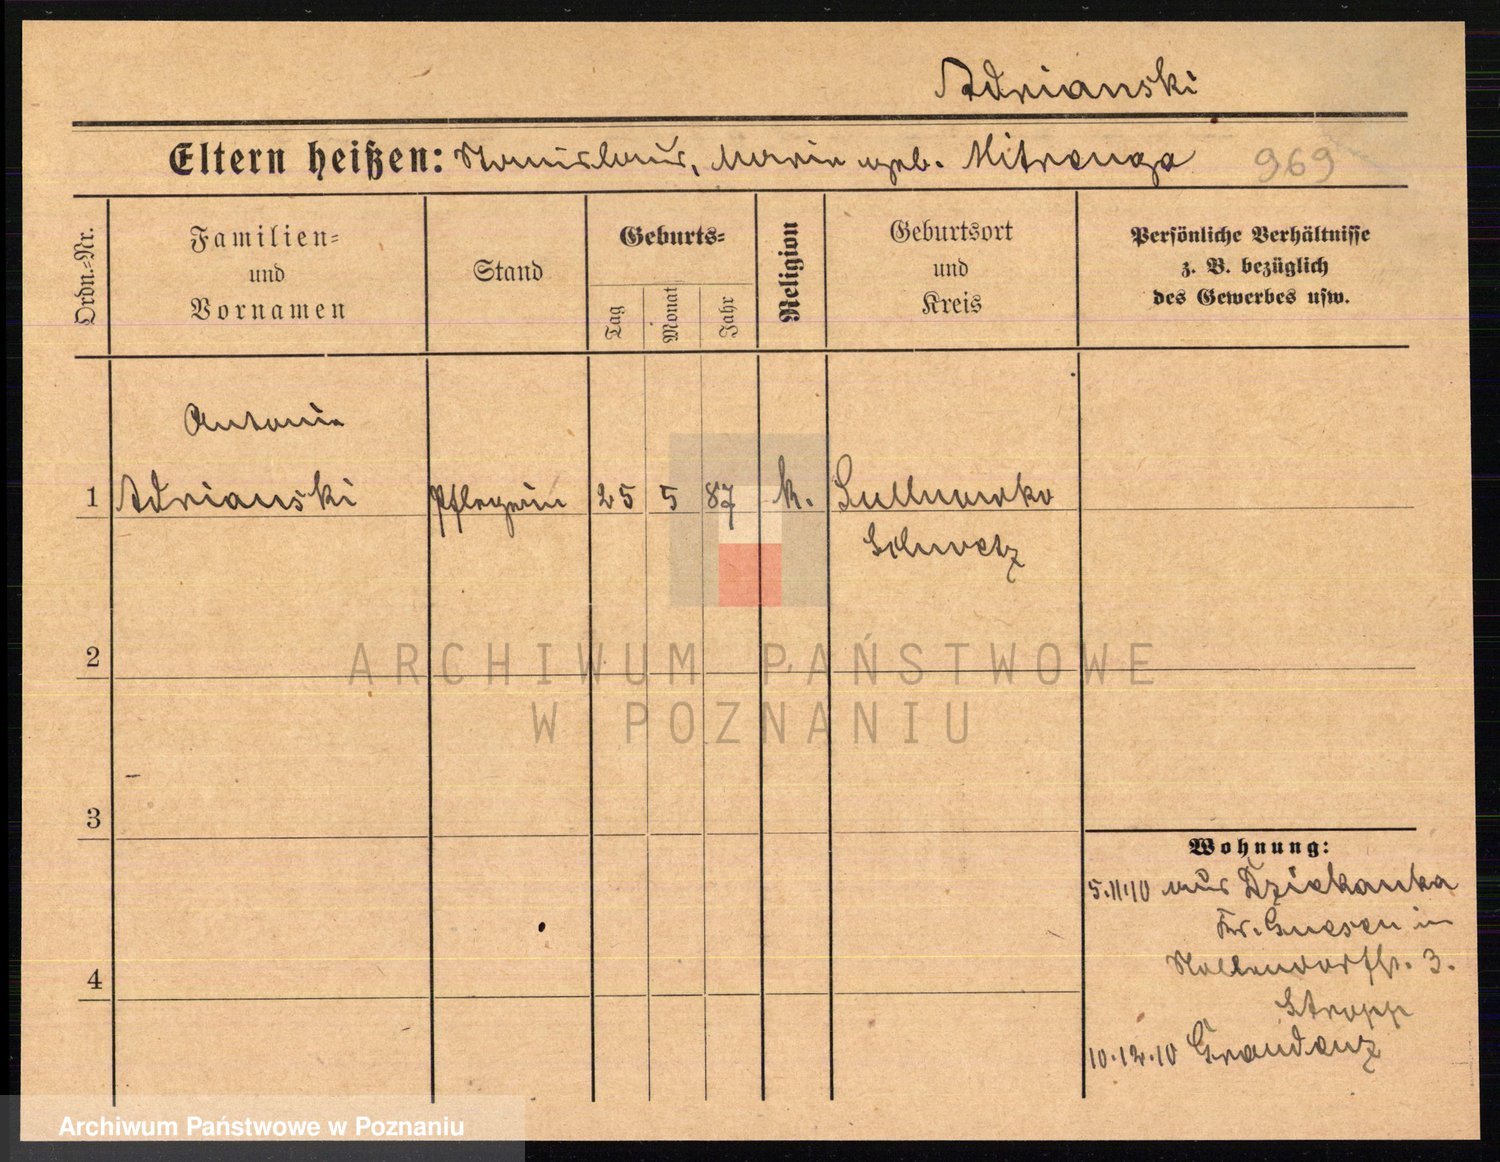 Adrianski
Eltern heißen: Stanislaus, Marie geb. Mitrenga 969
Ordn.=Nr.
Familien=
und
Vornamen
Stand
Geburts=
Tag
Monat
Jahr
Religion
Geburtsort
und
Kreis
Persönliche Verhältnisse
z. B. bezüglich
des Gewerbes usw.
Antonie
1 Adrianski Pflegerin 25 5 87 k. Sullnowko
Schwetz
2
3
4
Wohnung:
5.11.10 aus Dziekanka
Kr. Gnesen in
Nollendorfstr. 3.
Stropp
10.12.10 Graudenz
ARCHIWUM PAŃSTWOWE
W POZNANIU
Archiwum Państwowe w Poznaniu